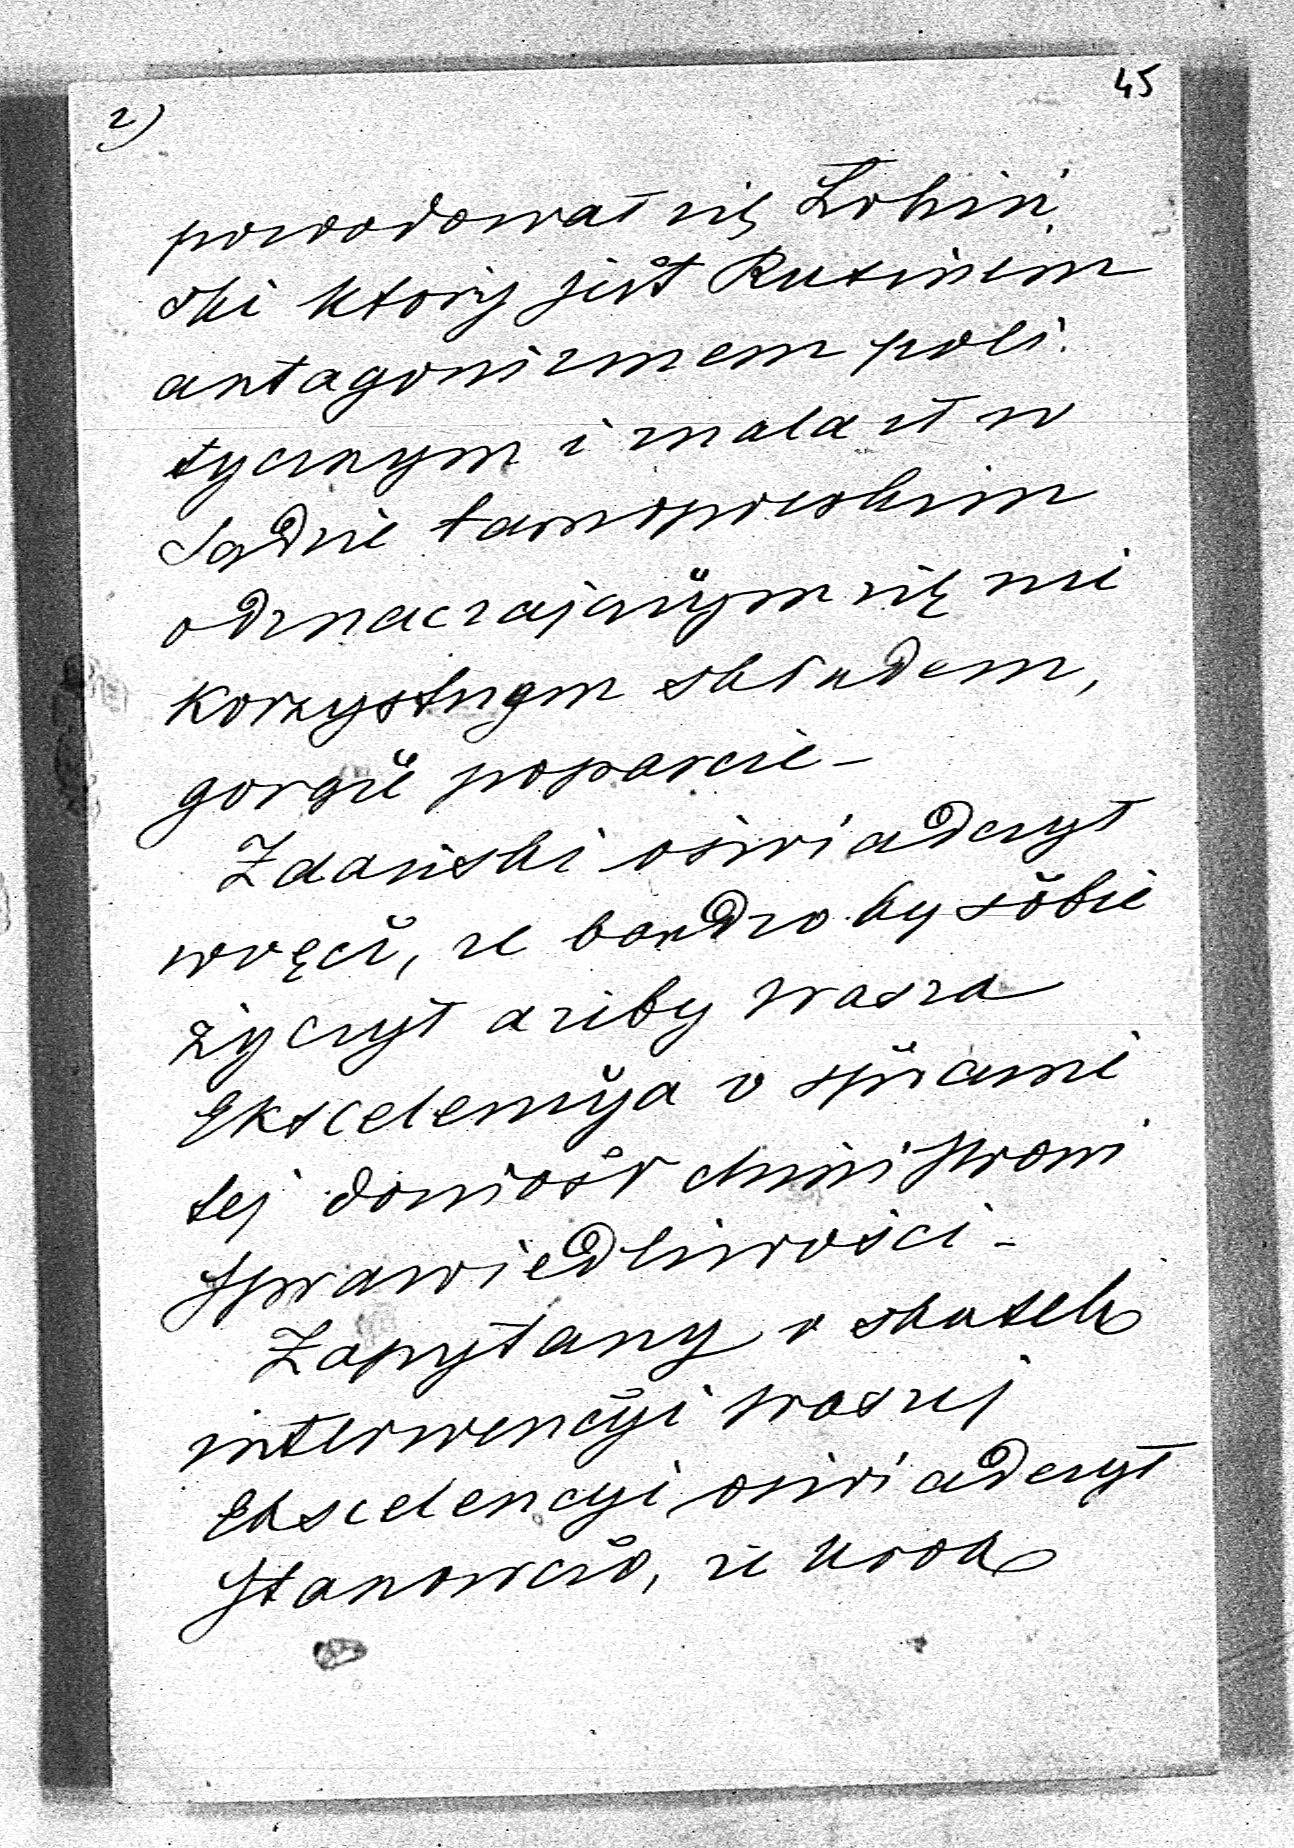 45
2)
powodował się Łobiń
ski który jest Rusinem
antagonizmem poli
tycznym i znalazł w
Sądzie tarnopolskim
odznaczającym się nie
korzystnym składem,
gorące poparcie -
Zdański oświadczył
wręcz, że bardzo by sobie
życzył ażeby Wasza
Ekscelencya o sprawie
tej doniosł Ministrowi
Sprawiedliwości -
Zapytany o skutek
interwencyi Waszej
Ekscelencyi, oświadczył
Stanowczo, że krok